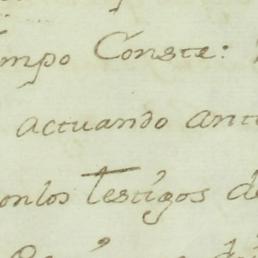 mpo Conste:
actuando ant
onlos testigos de